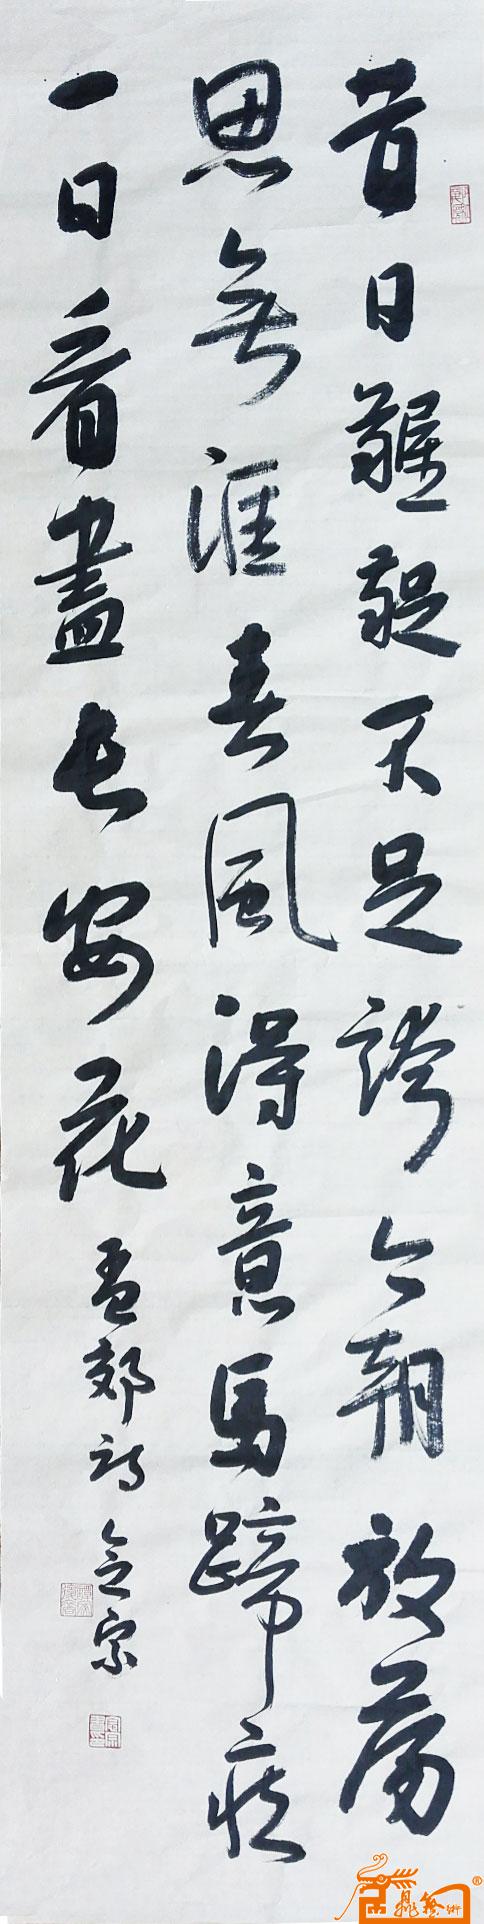 昔日齷齪不足誇今朝放蕩
思無涯春風得意馬蹄疾
一日看盡長安花
孟郊詩